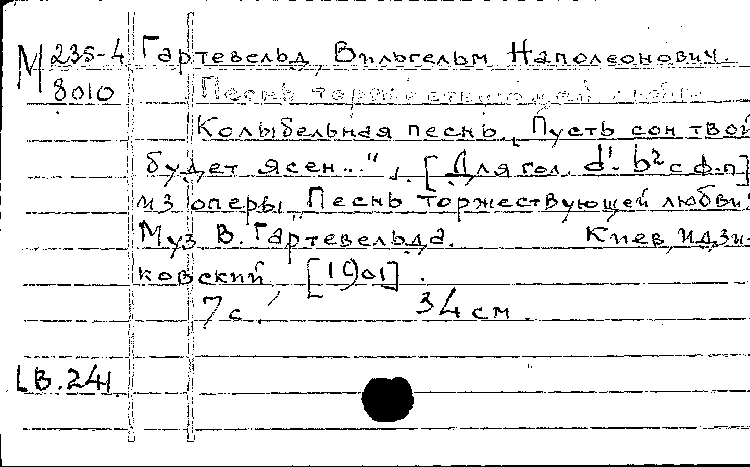 М 235-4 Гартевельд, Вильгельм Наполеонович.
8010 Песнь торжествующей любви
Колыбельная песнь „Пусть сон твой
будет ясен..." . [Для гол. d¹-b² с ф-п]
из оперы „Песнь торжествующей любви."
Муз В. Гартевельда. Киев, Идзи-
ковский, [1901].
7 с. 34 см.
LB.241